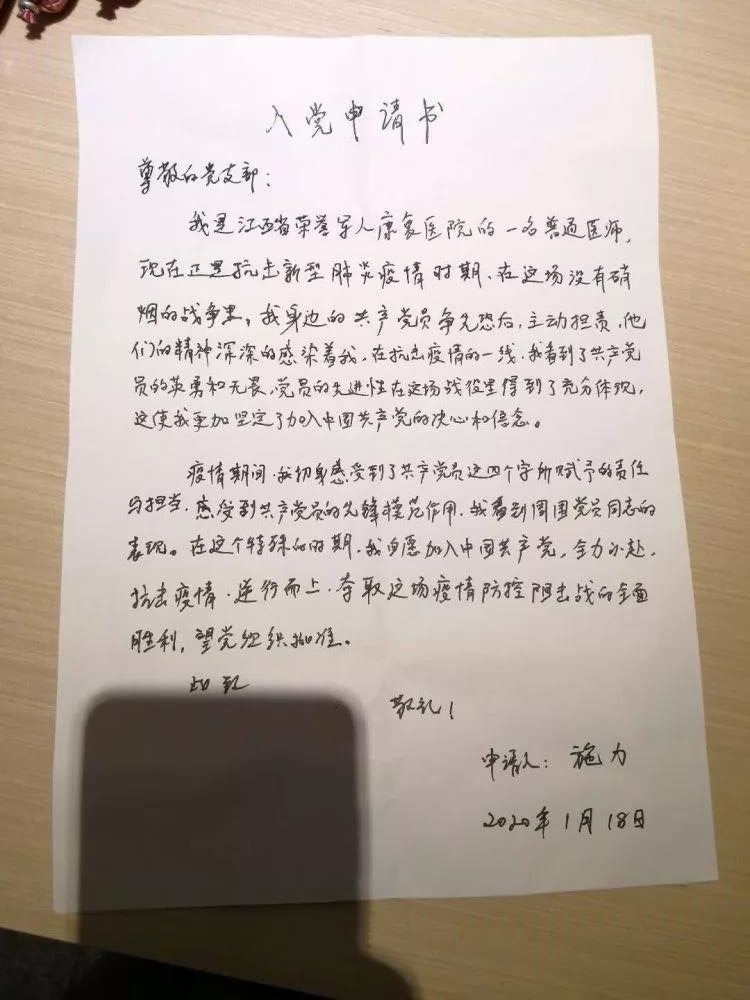 入党申请书
尊敬的党支部：
我是江西省荣誉军人康复医院的一名普通医师，
现在正是抗击新型肺炎疫情时期、在这场没有硝
烟的战争里，我身边的共产党员争先恐后，主动担责，他
们的精神深深的感染着我，在抗击疫情的一线，我看到了共产党
员的英勇和无畏，党员的先进性在这场战役里得到了充分体现，
这使我更加坚定了加入中国共产党的决心和信念。
疫情期间，我切身感受到了共产党员这四个字所赋予的责任
与担当，感受到共产党员的先锋模范作用，我看到周围党员同志的
表现。在这个特殊的时期，我自愿加入中国共产党，全力以赴，
抗击疫情，逆行而上，夺取这场疫情防控阻击战的全面
胜利，望党组织批准。
此致
敬礼！
申请人：施力
2020年1月18日